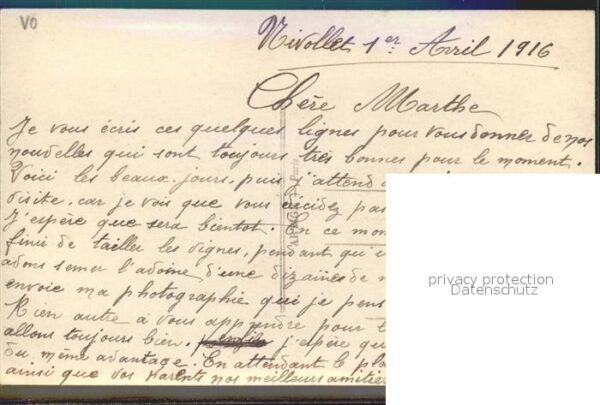 VO
Nivollet 1er Avril 1916
Chère Marthe
Je vous écris ces quelques lignes pour vous donner de nos
nouvelles qui sont toujours très bonnes pour le moment.
Voici les beaux jours, puis j'attend
visite, car je vois que vous décidez pas
J'espère que sera bientot. En ce mo
finir de tailler les vignes, pendant qu'i
semer l'adoine d'une dizaines de
envoie ma photographie que je pens
Rien autre a vous apprendre pour
allons toujours bien. j'espère qu
du même avantage. En attendant le pla
ainsi que vos Parents nos meilleurs amitiés
CARTE POSTALE
privacy protection
Datenschutz